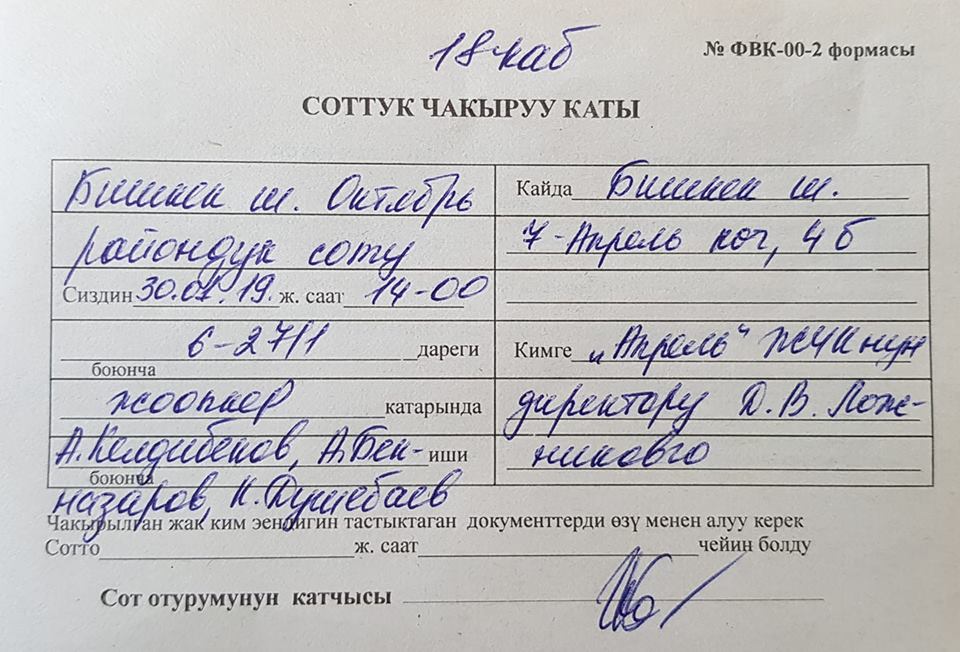 18 каб
№ ФВК-00-2 формасы
СОТТУК ЧАКЫРУУ КАТЫ
Бишкек ш. Октябрь
райондук соту
Сиздин 30.01.19. ж. саат 14-00
6-27/1 дареги
боюнча
жоопкер катарында
А.Келдибеков, А.Бек- иши
боюнча
назаров, К.Душебаев
Кайда Бишкек ш.
7-Апрель көч, 4б
Кимге "Апрель" ЖЧКнун
директору Д.В. Лож-
никовго
Чакырылган жак ким эендигин тастыктаган документтерди өзү менен алуу керек
Сотто ж. саат чейин болду
Сот отурумунун катчысы